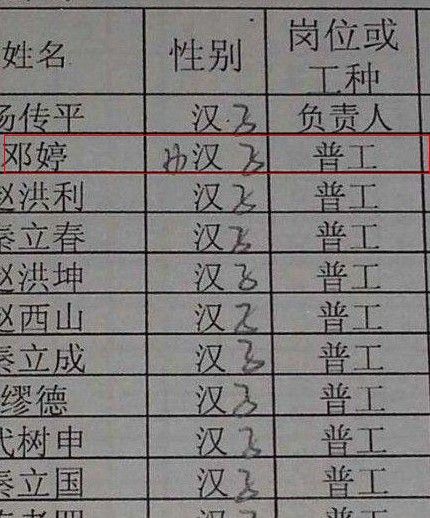 姓名 性别 岗位或
工种
杨传平 汉 负责人
邓婷 汉 普工
赵洪利 汉 普工
秦立春 汉 普工
赵洪坤 汉 普工
赵西山 汉 普工
秦立成 汉 普工
缪德 汉 普工
代树申 汉 普工
秦立国 汉 普工